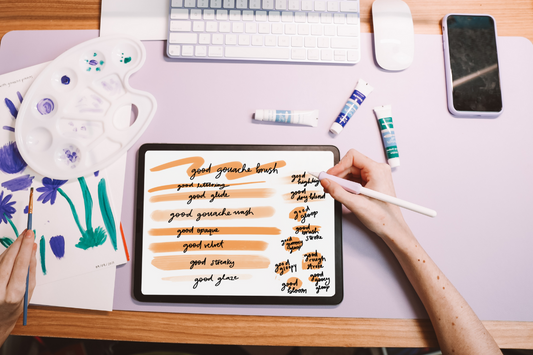 good gouache brush
good lettering
good glide
good gouache wash
good opaque
good velvet
good streaky
good glaze
good
good
dry blend
good
gloop
good
brush
stroke
good
good
gloopy
good
rough
stroke
good
bloom
good
gloop